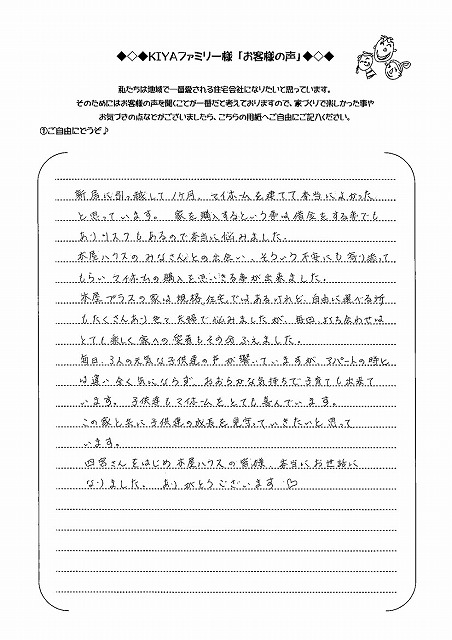 ◆◇◆KIYAファミリー様「お客様の声」◆◇◆
私たちは地域で一番愛される住宅会社になりたいと思っています。
そのためにはお客様の声を聞くことが一番だと考えておりますので、家づくりで楽しかった事や
お気づきの点などがございましたら、こちらの用紙へご自由にご記入ください。
①ご自由にどうぞ♪
新居に引っ越して1ヶ月、マイホームを建てて本当によかった
と思っています。家を購入するという事は借金をする事でも
ありリスクもあるので本当に悩みました。
木屋ハウスのみなさんとの出会い、そういう不安にも寄り添って
もらいマイホームの購入を思いきる事が出来ました。
木屋プラスの家は規格住宅ではあるけれど、自由に選べる所
もたくさんあり色々夫婦で悩みましたが、毎回、打ち合わせは
とても楽しく家への愛着もその分ふえました。
毎日、3人の元気な子供達の声が響いていますが、アパートの時と
は違い全く気にならず、おおらかな気持ちで子育ても出来て
います。子供達もマイホームをとても喜んでいます。
この家と共に子供達の成長を見守っていきたいと思って
います。
四宮さんをはじめ木屋ハウスの皆様、本当にお世話に
なりました。ありがとうございます♡